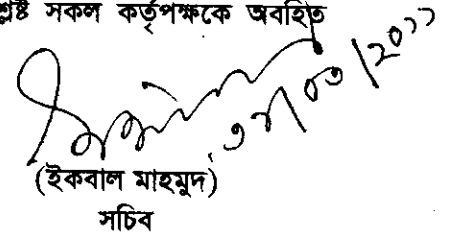 শ্লিষ্ট সকল কর্তৃপক্ষকে অবহিত
৩১/০৩/২০১১
(ইকবাল মাহমুদ)
সচিব